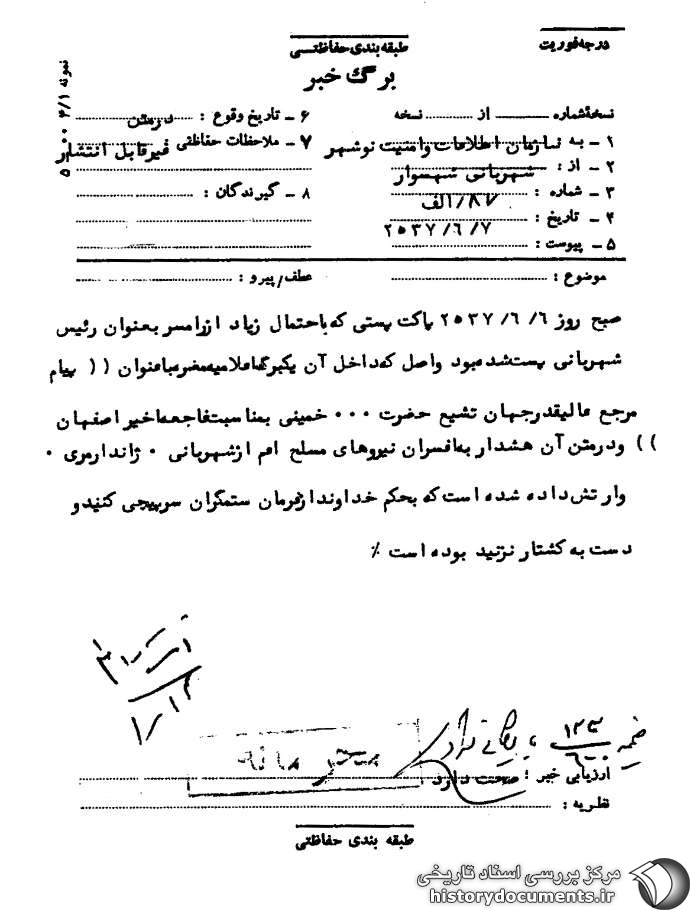 درجه فوریت
طبقه بندی حفاظتی
برگ خبر
نمونه ۴/۱
نسخهٔ شماره ........ از ........ نسخه
۱ – به سازمان اطلاعات وامنیت نوشهر
۲ – از : شهربانی شهسوار
۳ – شماره : ۸۷/ الف
۴ – تاریخ : ۲۵۳۷/۶/۷
۵ – پیوست :
۶ – تاریخ وقوع : درمتن
۷ – ملاحظات حفاظتی غیرقابل انتشار
۸ – گیرندگان :
موضوع :
عطف/پیرو :
صبح روز ۲۵۳۷/۶/۶ پاکت پستی که باحتمال زیاد ازرامسر بعنوان رئیس
شهربانی پست شده بود واصل که داخل آن یکبرگ اعلامیه مضره باعنوان (( پیام
مرجع عالیقدرجهان تشیع حضرت ۰۰۰ خمینی بمناسبت فاجعه اخیر اصفهان
)) ودرمتن آن هشدار به افسران نیروهای مسلح اعم ازشهربانی ۰ ژاندارمری ۰
وارتش داده شده است که بحکم خداوند ازفرمان ستمگران سرپیچی کنید و
دست به کشتار نزنید بوده است ٪
ضمیمه
ارزیابی خبر : صحت دارد
نظریه :
طبقه بندی حفاظتی
مرکز بررسی اسناد تاریخی
historydocuments.ir